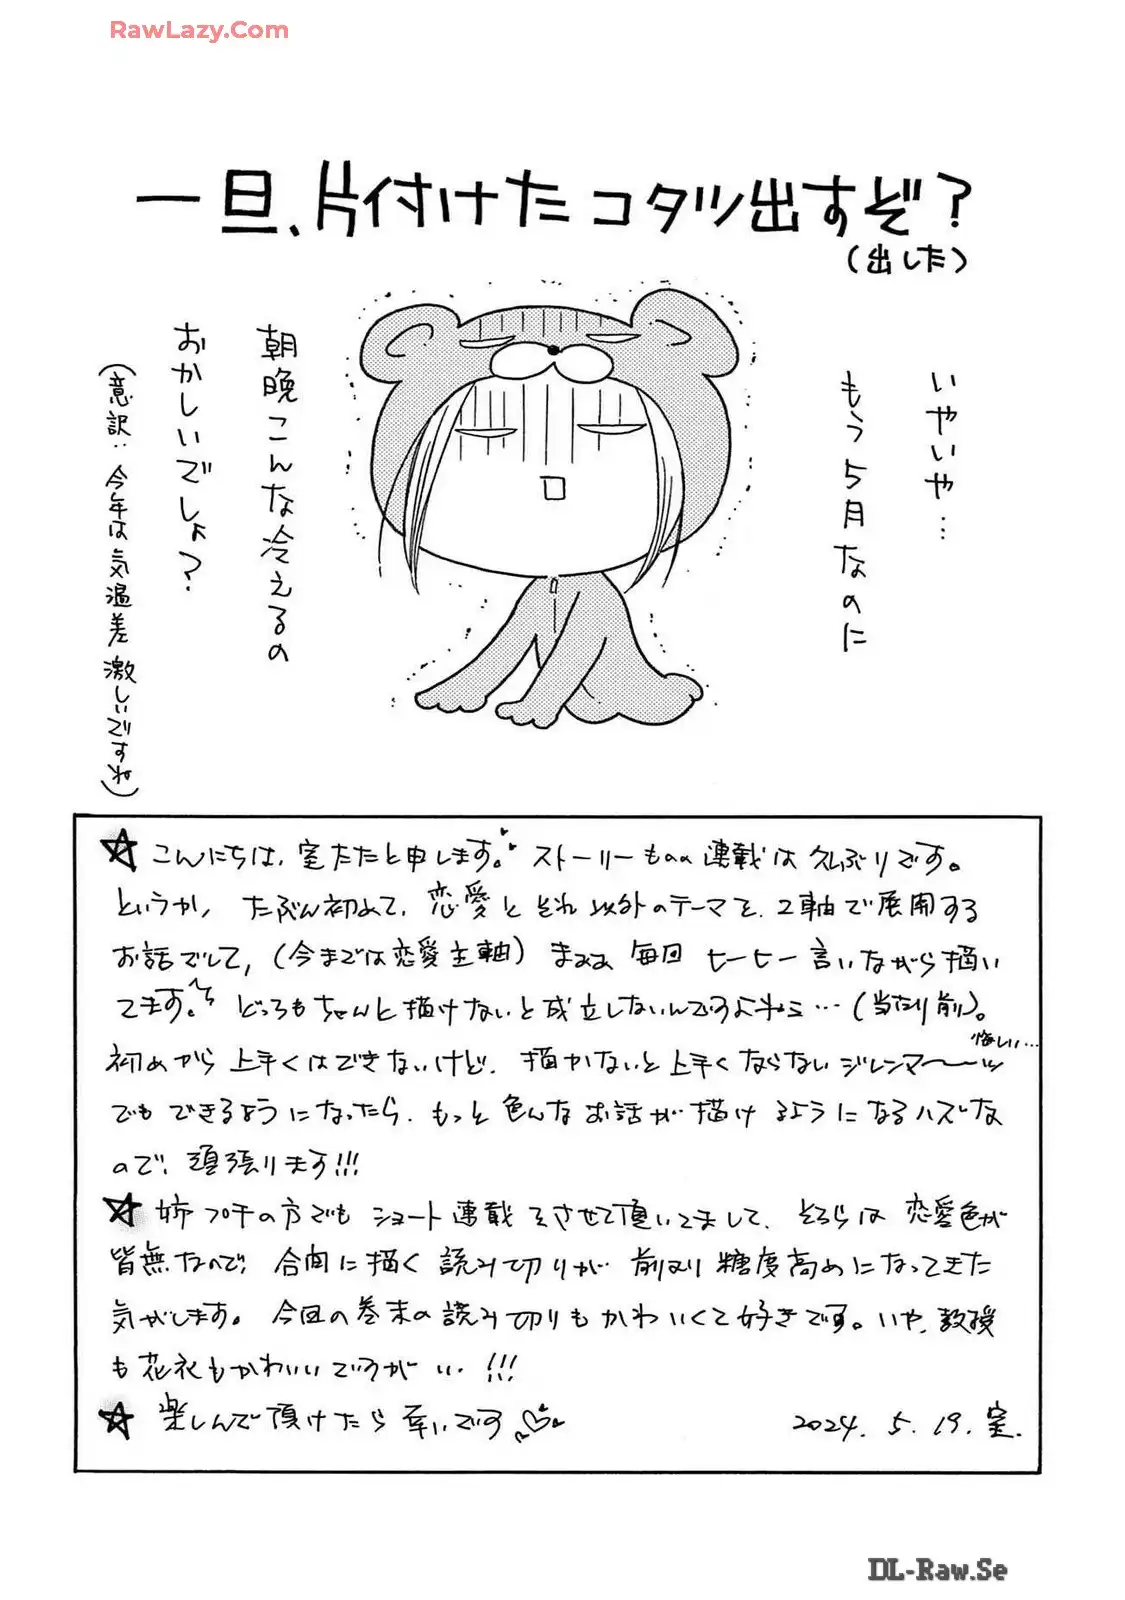 RawLazy.Com
一旦、片付けたコタツ出すぞ？
（出した）
いやいや…
もう5月なのに
朝晩こんな冷えるの
おかしいでしょ？
（意訳：今年は気温差激しいですね）
☆こんにちは、室たたと申します。ストーリーものの連載は久しぶりです。
というか、たぶん初めて、恋愛とそれ以外のテーマを、2軸で展開する
お話でして、（今までは恋愛主軸）まぁぁ毎回ヒーヒー言いながら描い
てます。どっちもちゃんと描けないと成立しないんですよねぇ…（当たり前）。
悔しい…
初めから上手くはできないけど、描かないと上手くならないジレンマ〜〜ッ
でもできるようになったら、もっと色んなお話が描けるようになるハズな
ので、頑張ります!!!
☆姉プチの方でもショート連載をさせて頂いてまして、そちらは恋愛色が
皆無なので、合間に描く読み切りが前より糖度高めになってきた
気がします。今回の巻末の読み切りもかわいくて好きです。いや、教授
も花衣もかわいいですが…!!!
☆楽しんで頂けたら幸いです♡ 2024.5.19.室.
DL-Raw.Se